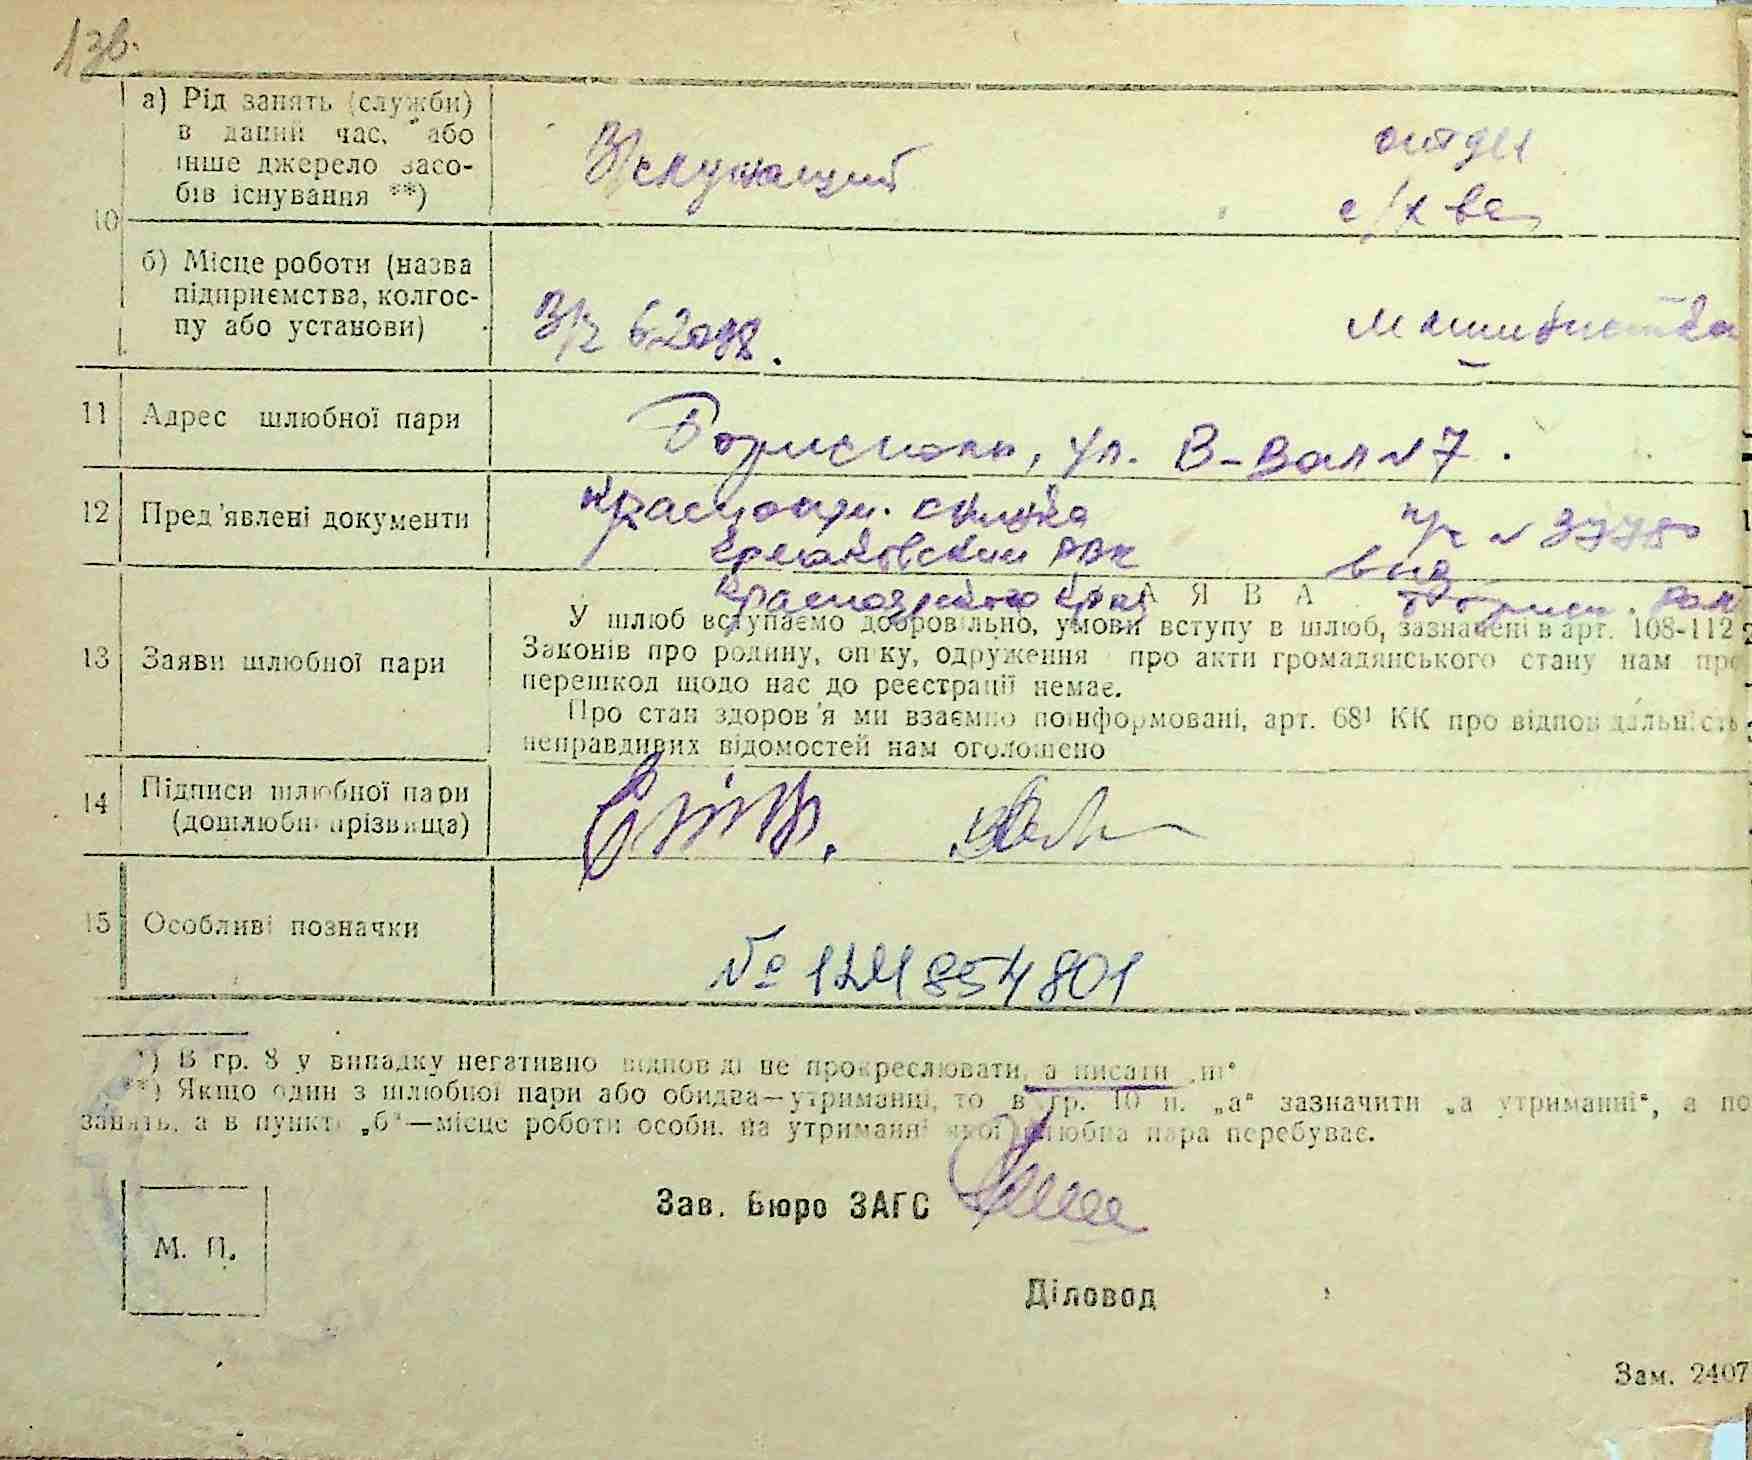 1зв.
а) Рід занять (служби)
в даний час, або
інше джерело засо-
бів існування **)
В/служащий
с/х
10
б) Місце роботи (назва
підприємства, колгос-
пу або установи)
В/ч
машинистка
11 Адрес шлюбної пари
Борисполь, ул. В-Вал №7.
12 Пред'явлені документи
Красноарм. книжка
Ермаковский РВК
Красноярского края
п/с №
А Я В А
13 Заяви шлюбної пари
У шлюб вступаємо добровільно, умови вступу в шлюб, зазначені в арт. 108-112
Законів про родину, опіку, одруження про акти громадянського стану нам
перешкод щодо нас до реєстрації немає.
Про стан здоров'я ми взаємно поінформовані, арт. 68¹ КК про відповідальність
неправдивих відомостей нам оголошено
14 Підписи шлюбної пари
(дошлюбні прізвища)
15 Особливі позначки
№ 124854801
*) В гр. 8 у випадку негативно відповіді не прокреслювати, а писати „ні“
**) Якщо один з шлюбної пари або обидва—утриманні, то в гр. 10 п. „а“ зазначити „а утриманні“, а по
занять, а в пункті „б“—місце роботи особи, на утриманні якої шлюбна пара перебуває.
Зав. Бюро ЗАГС
М. П.
Діловод
Зам. 2407